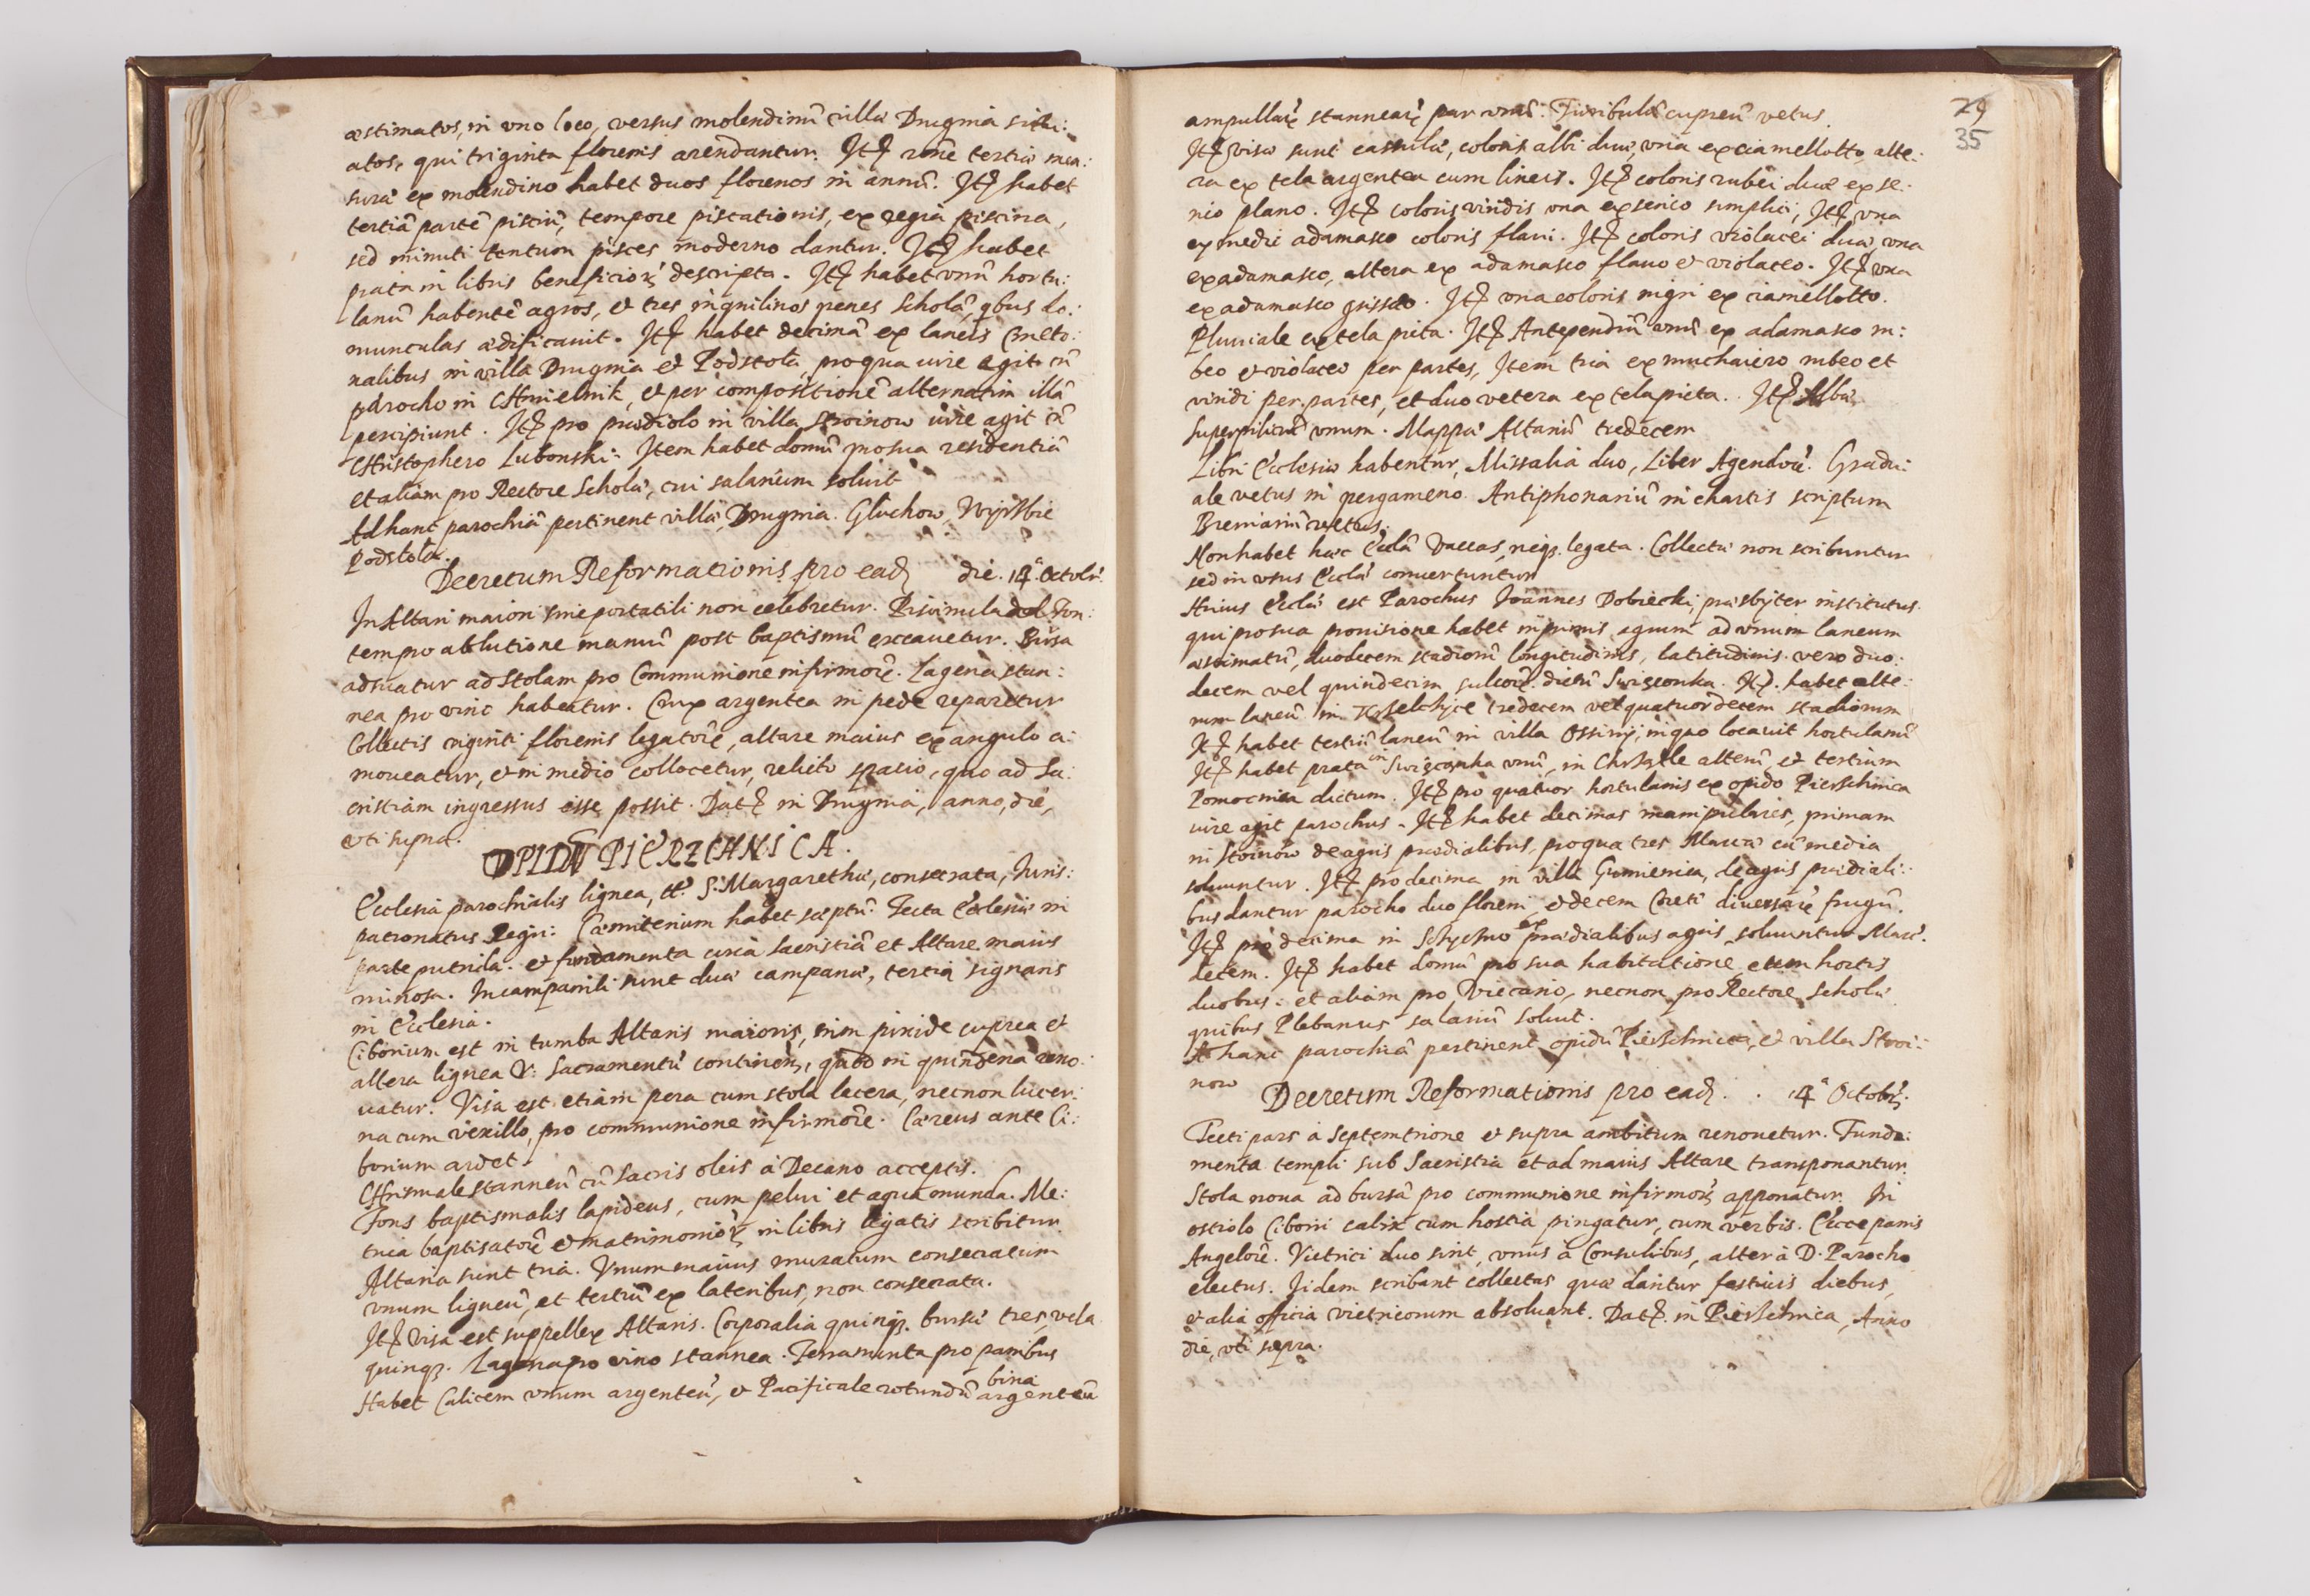 æstimatos, in vno loco, versus molendinũ villæ Drugnia situ:
atos, qui triginta florenis arendantur. Itẽ rõne tertiæ men:
suræ ex molendino habet duos florenos in annũ. Itẽ habet
tertiã partẽ pisciũ, tempore piscationis, ex regia piscina,
sed minuti tantum pisces moderno dantur. Itẽ habet
prata in libris beneficior̃ descripta. Itẽ habet vnũ hortu:
lanũ habentẽ agros, et tres inquilinos penes Scholã, qbus do:
munculas ædificauit. Itẽ habet decimã ex laneis Cmeto:
nalibus in villa Drugnia et Podstola, pro qua iure agit cũ
parocho in CHmielnik, et per compositionẽ alternatim illã
percipiunt. Itẽ pro prædiolo in villa Stroinow iure agit cũ
CHristophero Lubonski: Item habet domũ pro sua residentiã
et aliam pro Rectore Scholæ, cui salarium soluit
Ad hanc parochiã pertinent villæ, Drugnia. Gluchow, Wyrzbie
Podstola.
Decretum Reformationis pro eadẽ die. 14.ª Octobr̃.
In Altari maiori sine portatili non celebretur. Piscinula ad Fon:
tem pro ablutione manuũ post baptismũ excauetur. Bursa
adsuatur ad stolam pro Communione infirmor̃. Lagena stan:
nea pro vino habeatur. Crux argentea in pede reparetur
Collectis viginti florenis legator̃, altare maius ex angulo a:
moueatur, et in medio collocetur, relicto spatio, quo ad Sa:
cristiam ingressus esse possit. Datẽ in Drugnia, anno, die,
vti supra.
OPIDŨ PIERZCHNICA.
Ecclesia parochialis lignea, tt. S. Margarethæ, consecrata, Iuris:
patronatus Regii: Cæmiterium habet septũ. Tecta Ecclesiæ in
parte putrida. et fundamenta circa Sacristiã et Altare maius
minosa. In campanili sunt duæ campanæ, tertia signaris
in Ecclesia.
Ciborium est in tumba Altaris maioris, cum pixide cuprea et
altera lignea V: Sacramentũ continens, quod in quindena reno:
uatur. Visa est etiam pera cum stola lacera, necnon lucer:
na cum vexillo, pro communione infirmor̃. Cæreus ante Ci:
borium ardet.
CHrismale stanneũ cũ Sacris oleis à Decano acceptis.
Fons baptismalis lapideus, cum pelui et aqua munda. Me:
trica baptisator̃ et matrimonior̃, in libris ligatis scribitur
Altaria sunt tria. Vnum maius muratum consecratum
vnum ligneũ, et tertiũ ex lateribus, non consecrata.
Itẽ visa est suppellex Altaris. Corporalia quinq. bursæ tres, vela
quinq. Lagena pro vino stannea. Ferramenta pro panibus
bina
Habet Calicem vnum argenteũ, et Pacificale rotundũ argenteũ
29
35
ampullar̃ stannear̃ par vnũ. Turibulũ cupreũ vetus.
Itẽ visæ sunt casulæ, coloris albi duæ, vna ex ciamellotto, alte:
ra ex tela argentea cum lineis. Itẽ coloris rubei duæ ex se:
rico plano. Itẽ coloris viridis vna ex serico simplici, Itẽ vna
ex medii adamasco coloris flaui. Itẽ coloris violacei duæ, vna
ex adamasco, altera ex adamasco flauo et violaceo. Itẽ vna
ex adamasco grisseo. Itẽ vna coloris nigri ex ciamellotto.
Pluuiale ex tela picta. Itẽ Antependiũ vnũ ex adamasco ru:
beo et violaceo per partes, Item tria ex muchaiero rubeo et
viridi per partes, et duo vetera ex tela picta. Itẽ Albæ,
superpiliciũ vnum. Mappæ Altariũ tredecem
Libri Ecclesiæ habentur, Missalia duo, Liber Agendor̃. Gradu:
ale vetus in pergameno. Antiphonariũ in chartis scriptum
Breuiariũ vetus.
Non habet hæc Ecclã vaccas, neq. legata. Collectæ non scribuntur
sed in vsus Ecclæ conuertuntur
Huius Ecclæ est Parochus Ioannes Dobiecki, præsbyter institutus.
qui pro sua prouisione habet inprimis agrum ad vnum laneum
æstimatũ, duodecem stadiorũ longitudinis, latitudinis vero duo:
decem vel quindecim sulcor̃. dictũ Swięconka. Itẽ. habet alte:
rum laneũ in Kielchyce tredecem vel quatuordecem stadiorum
Itẽ habet tertiũ laneũ in villa Ossiny, in quo locauit hortulanũ
Itẽ habet prata in Swięconka vnũ, in Chrzale alterũ, et tertium
Pomocnica dictum. Itẽ pro quatuor hortulanis ex opido Pierzchnica
iure agit parochus. Itẽ habet decimas manipulares, primam
in Stoinow de agris prædialibus, pro qua tres Marcæ cũ media
soluuntur. Itẽ pro decima in villa Gumienica, de agris prædiali:
bus dantur parocho duo floreni, et decem Coreti diuersar̃ frugũ.
Itẽ pro decima in Schychno ex prædialibus agris, soluuntur Marc̃.
decem. Itẽ habet domũ pro sua habitatione, cum hortis
duobus. et aliam pro Vicario, necnon pro Rectore scholæ
quibus Plebanus salariũ soluit.
Ad hanc parochiã pertinent opidũ Pierzchnica, et villa Stroi:
now
Decretum Reformationis pro eadẽ. . 14ª Octobr̃.
Tecti pars à Septemtrione et supra ambitum renouetur. Funda:
menta templi sub Sacristia et ad maius Altare transponantur.
Stola noua ad bursã pro communione infirmor̃ apponatur. In
ostiolo Ciborii calix cum hostia pingatur, cum verbis. Ecce panis
Angelor̃. Vitrici duo sint, vnus à Consulibus, alter à D. Parocho
electus. Iidem scribant collectas, quæ dantur festiuis diebus,
et alia officia vitricorum absoluant. Datẽ. in Pierzchnica, Anno
die, vti supra.